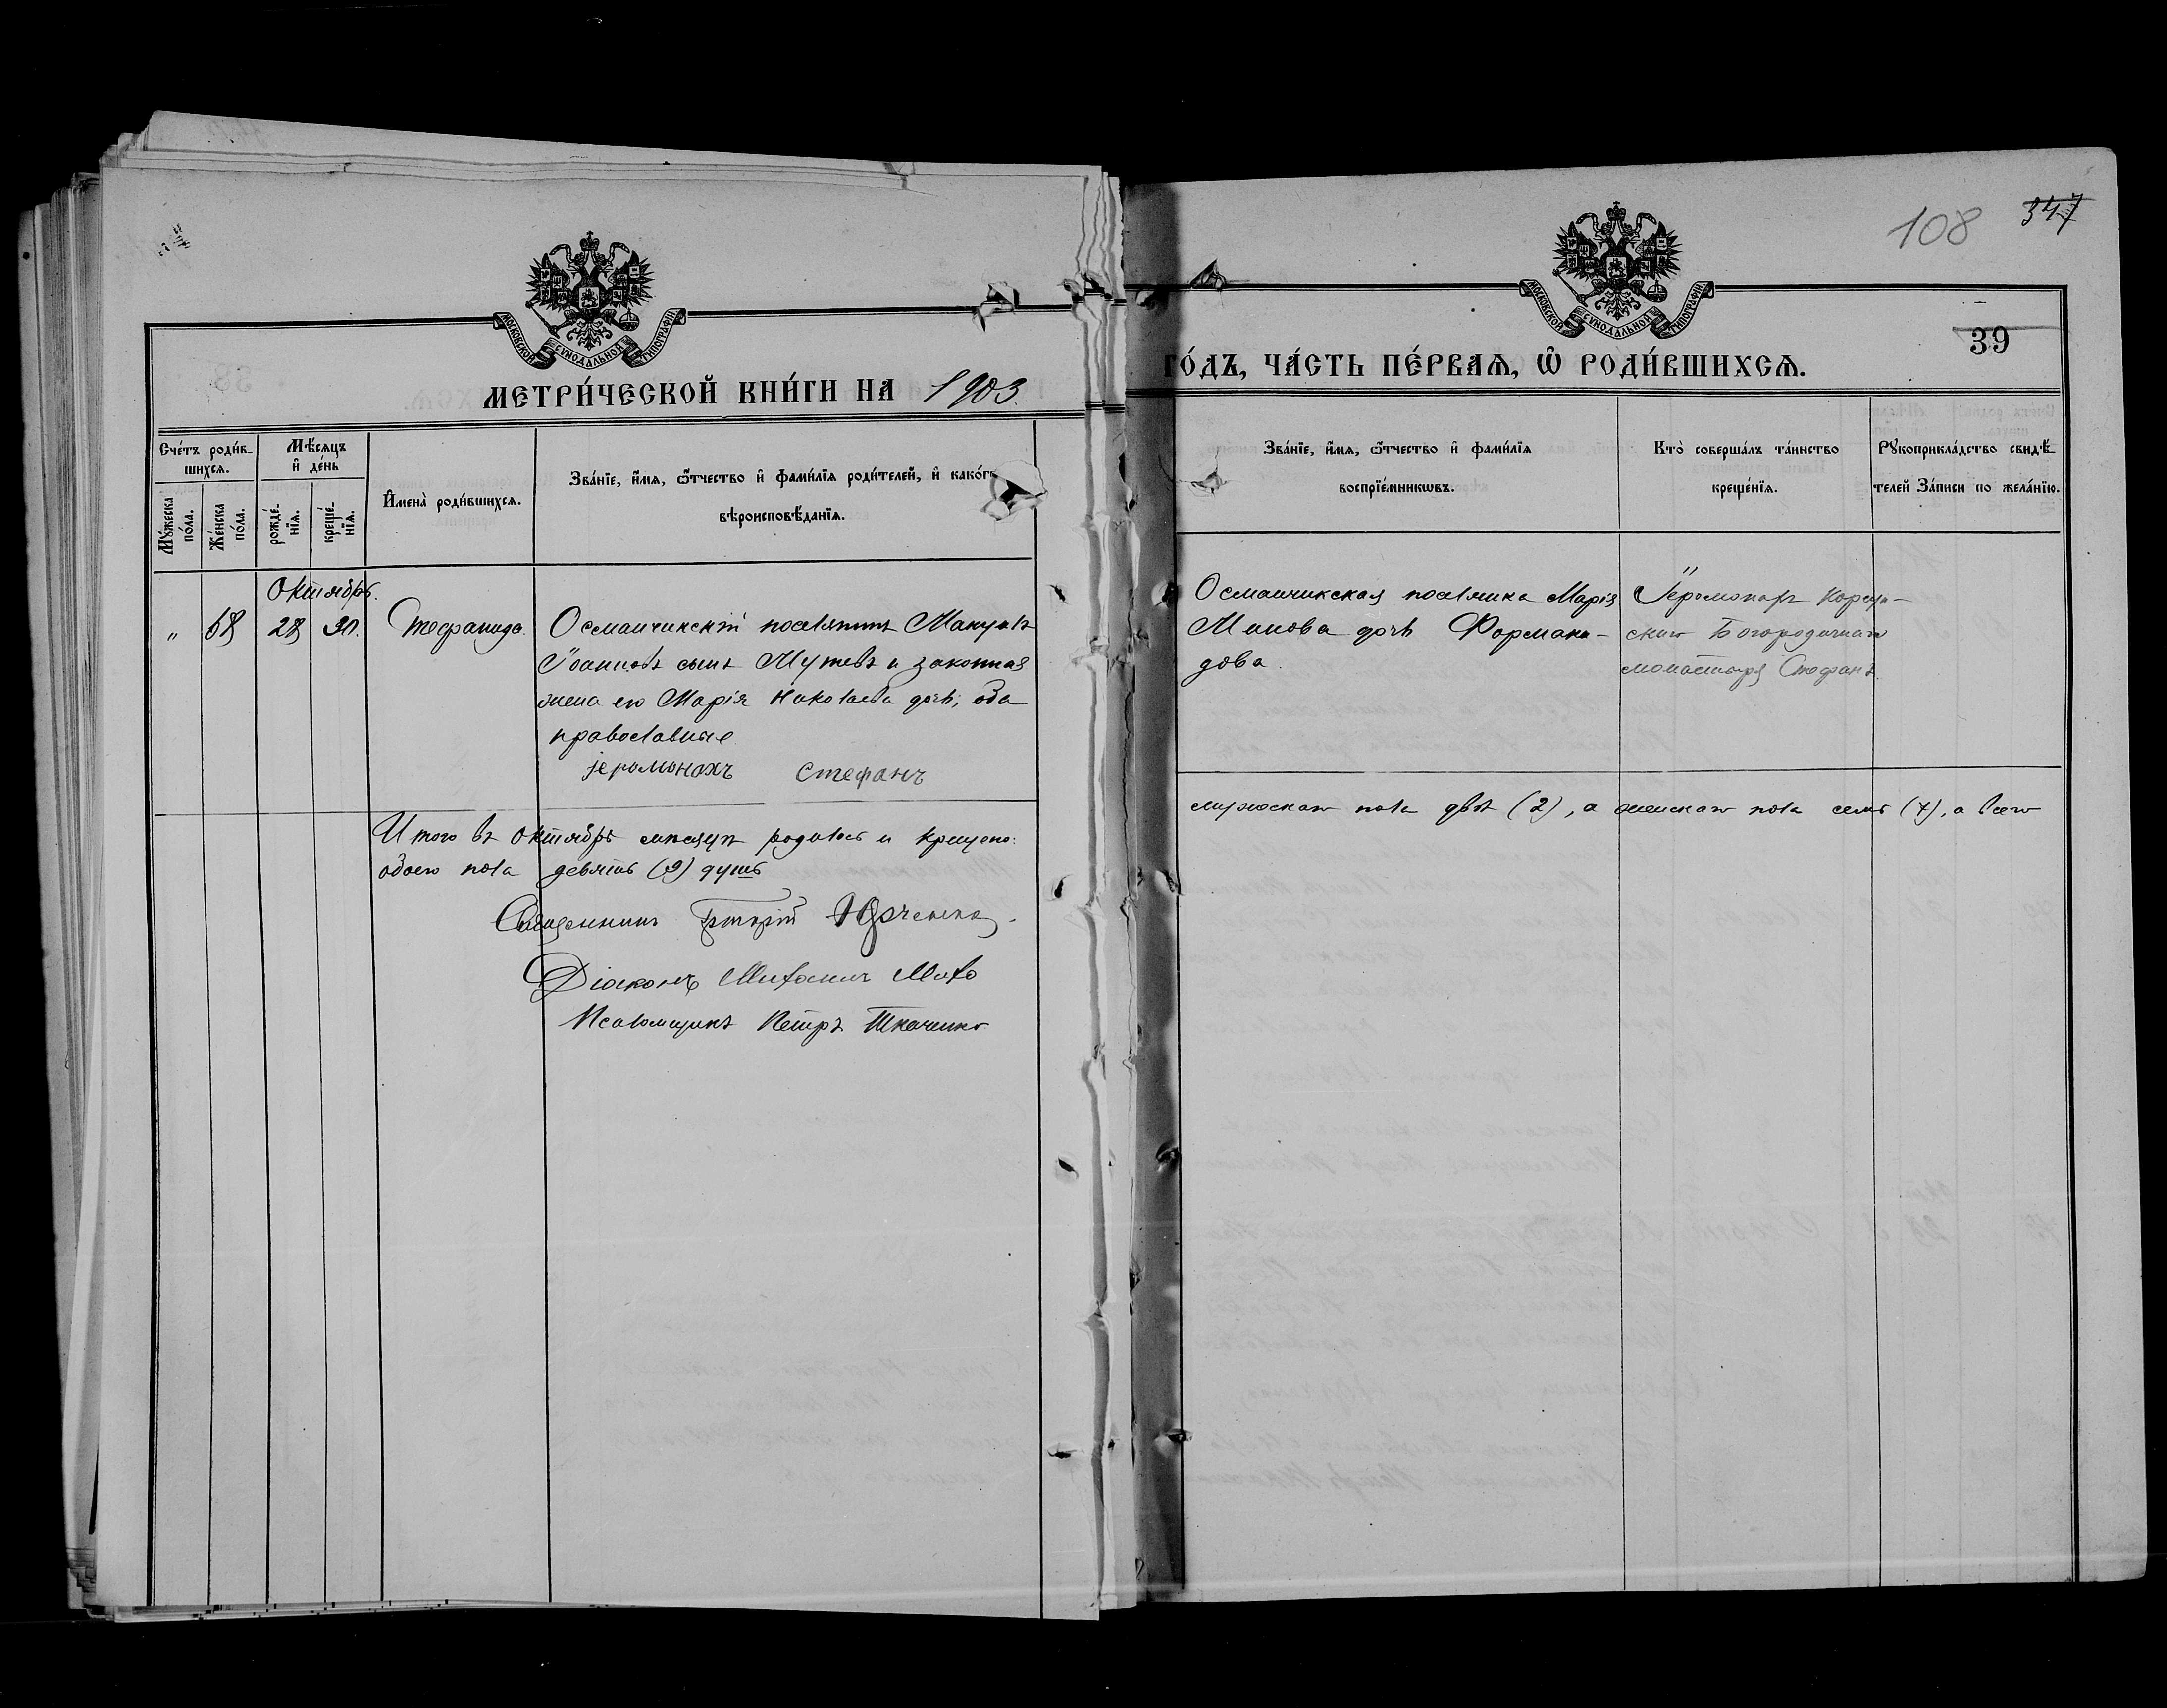 108 347
МОСКОВСКОЙ СѴНОДАЛЬНОЙ ТИПОГРАФІИ
МОСКОВСКОЙ СѴНОДАЛЬНОЙ ТИПОГРАФІИ
39
МЕТРИ́ЧЕСКОЙ КНИ́ГИ НА 1903
ГО́ДЪ, ЧА́СТЬ ПЕ́РВАѦ, Ѿ РОДИ́ВШИХСѦ.
Сче́тъ роди́в-
шихсѧ.
Мꙋ́жеска по́ла.
Же́нска по́ла.
Мѣ́сѧцъ
и҆ де́нь
рожде́-
нїѧ.
креще́-
нїѧ.
И҆мена̀ роди́вшихсѧ.
Зва́нїе, и҆́мѧ, ѻ҆́тчество и҆ фами́лїѧ роди́телей, и҆ како́гѡ
вѣроисповѣ́данїѧ.
Зва́нїе, и҆́мѧ, ѻ҆́тчество и҆ фами́лїѧ
воспрїе́мникѡвъ.
Кто̀ соверша́лъ та́инство
креще́нїѧ.
Рꙋкоприкла́дство свидѣ́-
телей за́писи по жела́нїю.
Октябрь.
„ 68 28 30. Стефанида. Османчикскій поселянинъ Мануилъ
Іоанновъ сынъ Мутевъ и законная
жена его Марія Николаева дочь, оба
православные
іеромонахъ Стефанъ
Османчикская поселянка Марія
Минова дочь Формани-
дова.
Іеромонахъ Корсун-
скаго Богородичнаго
монастыря Стефанъ.
Итого въ Октябрѣ мѣсяцѣ родилось и крещено:
мужескаго пола двѣ (2), а женскаго пола семь (7), а всего
обоего пола девять (9) душъ
Священникъ Юрченко
Діаконъ Михаилъ
Псаломщикъ Петръ Ткаченко